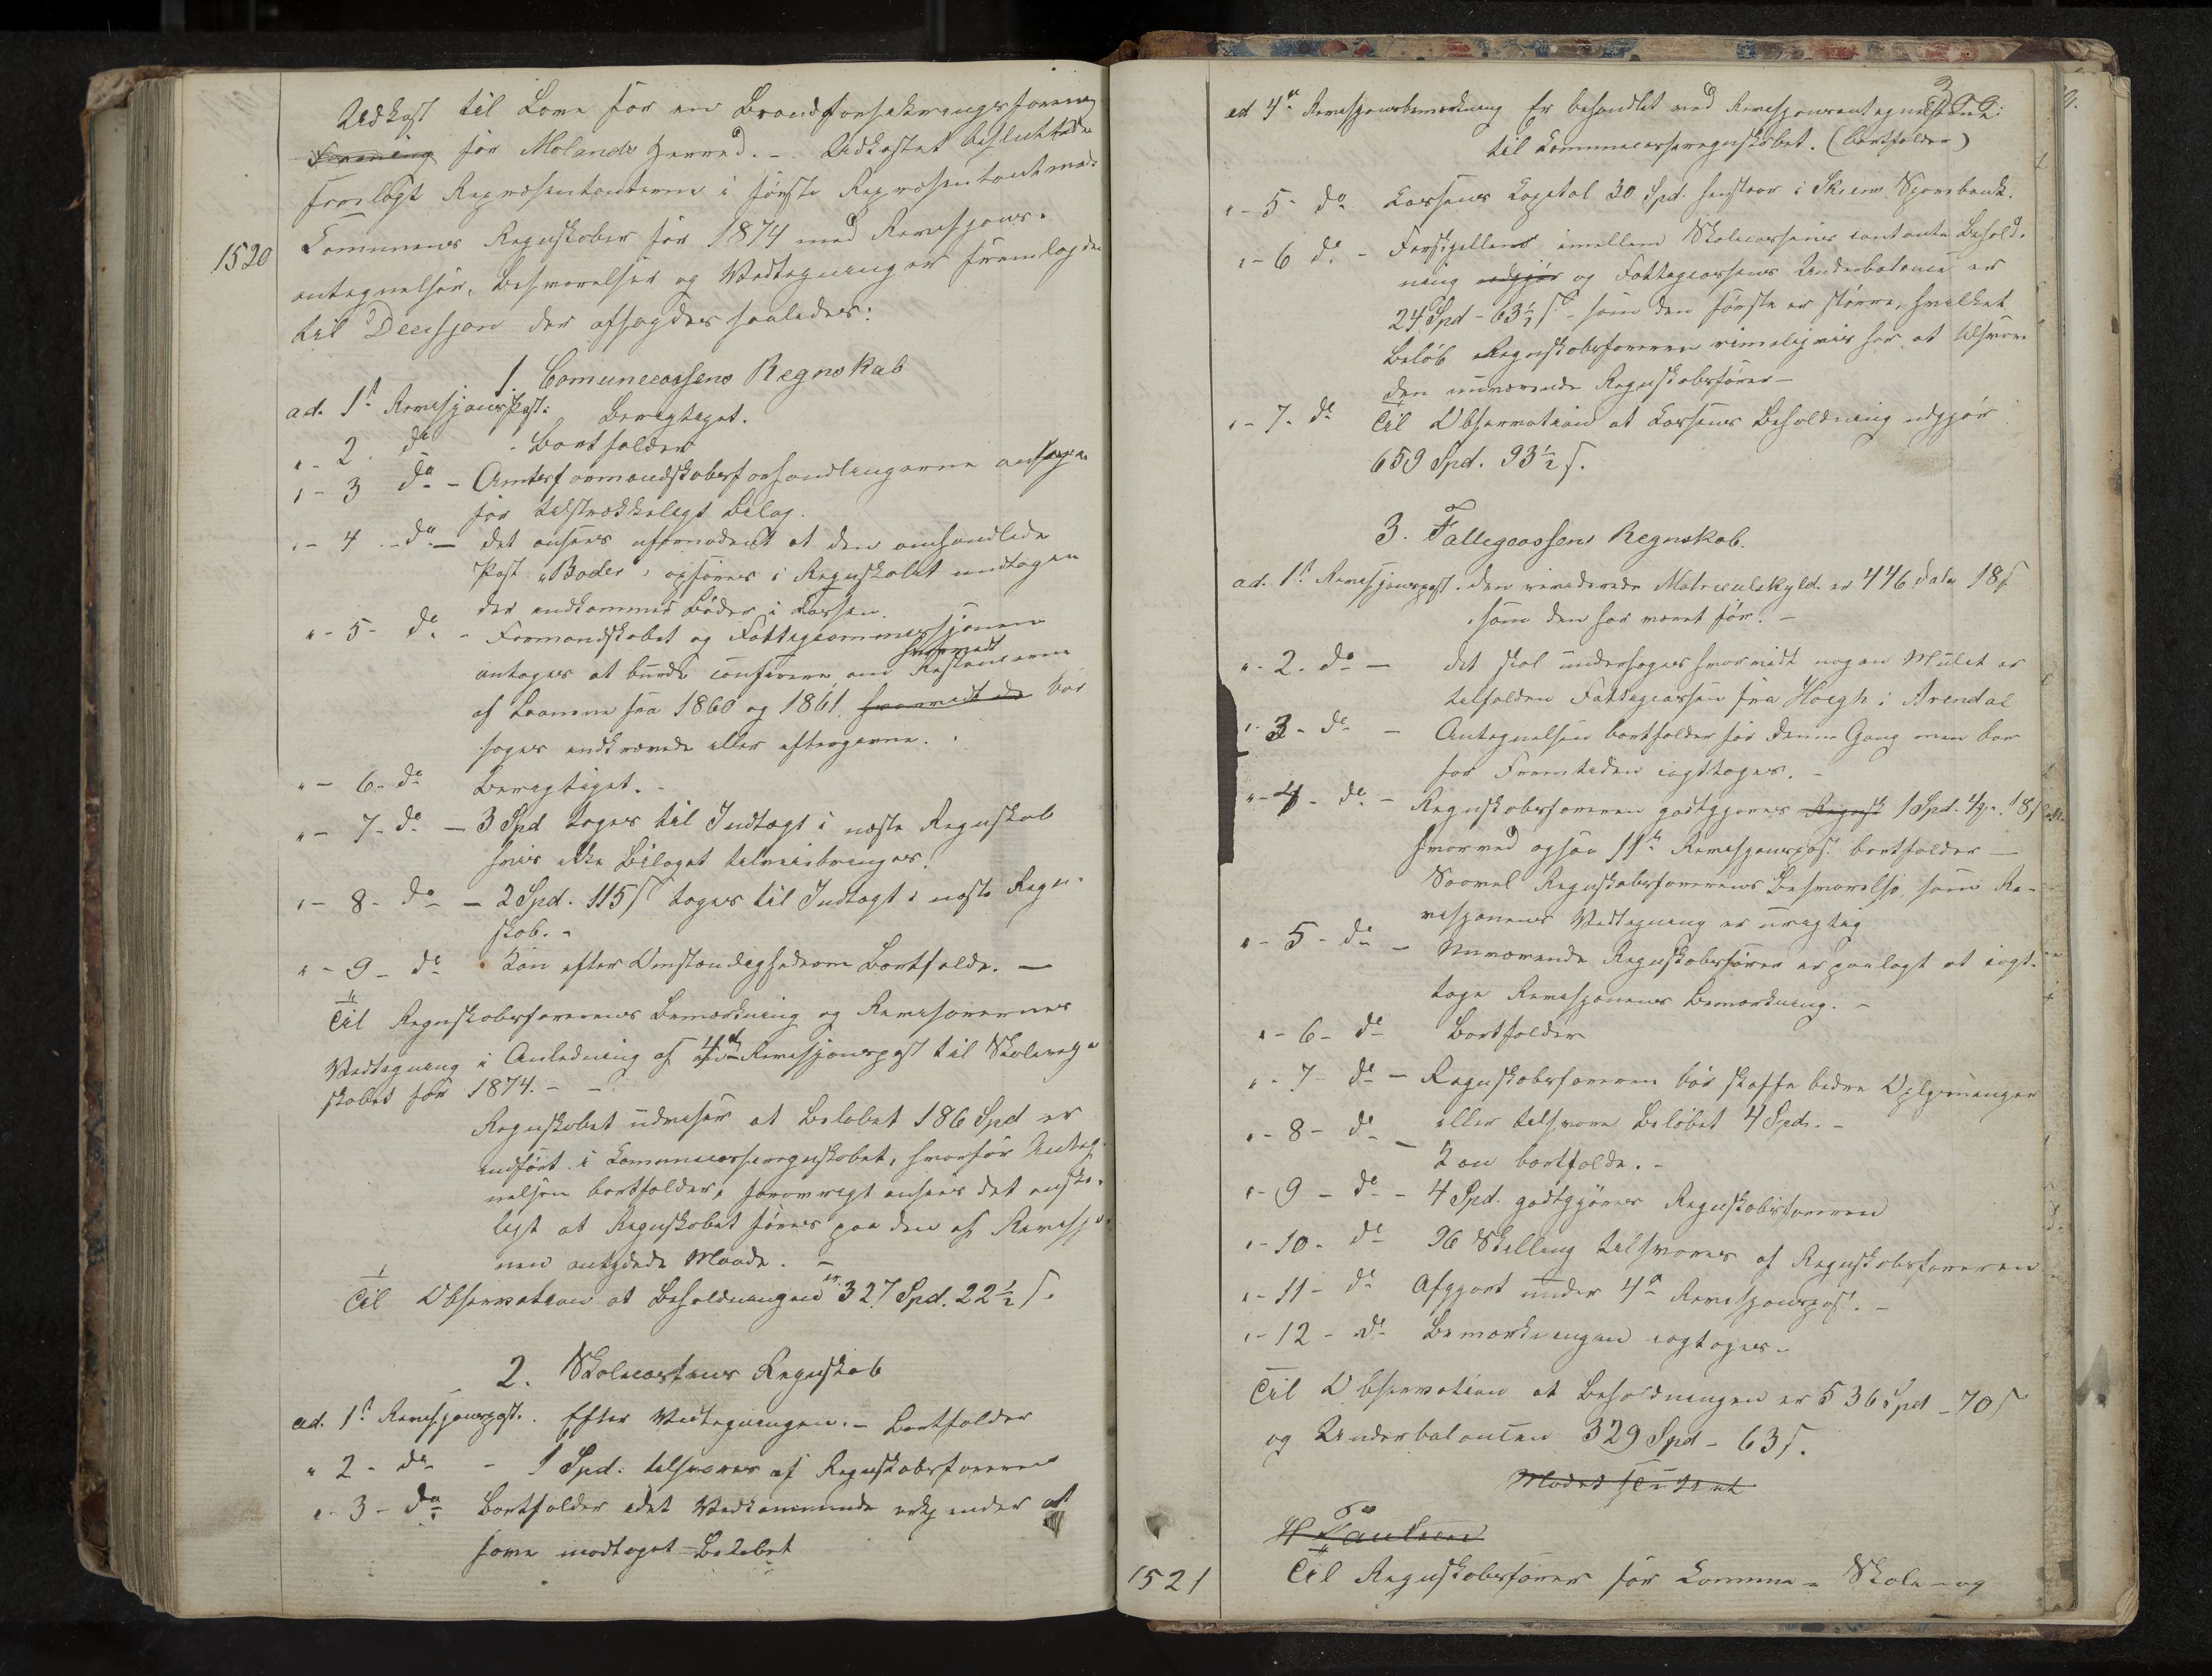 Udkast til Love for en Brandforsikringsforening
Forening for Molands Herred. – Udkastet besluttedes
forelagt Repræsentanterne i første Repræsentantmøde
1520 Communens Regnskaber for 1874 med Revisjons-
antegnelser, Besvarelser og Vedtegninger fremlagdes
til Decisjon der afsagdes saaledes:
1. Comunecassens Regnskab
ad. 1ste Revisjonspost: Berigtiget.
" – 2. do Bortfalder
" – 3 do – Amtsformandskabsforhandlingerne ansees
for tilstrækkeligt Bilag.
" – 4 – do – det ansees ufornødent at den omhandlede
Post "Bøder" opføres i Regnskabet undtagen
der indkommer Bøder i Kassen.
" – 5 – do – Formandskabet og Fattigcommissjonen
antages at burde conferere om hvorvidt Restancerne
af Laanene fra 1860 og 1861 hvorvidt de bør
søges inddrevne eller eftergivne.
" – 6 – do Berigtiget. –
" – 7 – do – 3 Spd tages til Indtægt i næste Regnskab
hvis ikke Bilaget tilveiebringes.
" – 8 – do – 2 Spd. 115 s tages til Indtægt i næste Regn-
skab. –
" – 9 – do Kan efter Omstændighederne Bortfalde. –
Til Regnskabsførerens Bemærkning og Revisorernes
Vedtegning i Anledning af 4de Revisjonspost til Skoleregn-
skabet for 1874. – –
Regnskabet udviser at Beløbet 186 Spd er
indført i Comunecasseregnskabet, hvorfor Anteg-
nelsen bortfalder, forøvrigt ansees det ønske-
ligt at Regnskabet føres paa den af Revisjo-
nen antydede Maade. –
Til Observation at Beholdningen er 327 Spd. 22½ s.
2. Skolecassens Regnskab
ad. 1ste Revisjonspost. Efter Vedtegningen. – Bortfalder
" 2 – do – 1 Spd. tilsvares af Regnskabsføreren
" – 3 – do Bortfalder idet Vedkommende erkjender at
have modtaget Beløbet
ad 4de Revisjonsbemærkning Er behandlet ved Revisjonsantegnelserne
til Comunecasseregnskabet. (bortfalder)
" – 5 – do Cassens Capital 30 Spd. henstaar i Skiens Sparebank.
" – 6 do – Forskjellen imellem Skolecassens contante Behold-
ning udgjør og Fattigcassens Underbalance er
24 Spd – 63½ s – som den første er større, hvilket
Beløb Regnskabsføreren rimeligvis har at tilsvare
den nuværende Regnskabsfører –
" – 7 – do Til Observation at Cassens Beholdning udgjør
659 Spd. 93½ s.
3. Fattigcassens Regnskab.
ad. 1ste Revisjonspost. den reviderede Matriculskyld er 446 daler 18 s
som den har været før. –
" – 2 – do – det skal undersøges hvorvidt nogen Mulct er
tilfalden Fattigcassen fra Høegh i Arendal
" – 3 – do – Antegnelsen bortfalder for denne Gang men bør
for Fremtiden iagttages. –
" – 4 – do – Regnskabsføreren godtgjøres Regnsk 1 Spd. 18 s
hvorved ogsaa 11te Revisjonspost bortfalder –
Saavel Regnskabsførerens Besvarelse, som Re-
visjonens Vedtegning er urigtig
" – 5 – do – Nuværende Regnskabsfører er paalagt at iagt-
tage Revisjonens Bemærkning. –
" – 6 – do Bortfalder
" – 7 – do – Regnskabsføreren bør skaffe bedre Oplysninger
eller tilsvare Beløbet 4 Spd. –
" – 8 – do – Kan bortfalde. –
" – 9 – do – 4 Spd. godtgjøres Regnskabsføreren
" – 10 – do 96 Skilling tilsvares af Regnskabsføreren
" – 11 – do Afgjort under 4de Revisjonspost. –
" – 12 – do Bemærkningen iagttages –
Til Observation at Beholdningen er 536 Spd – 70 s
og Underbalancen 329 Spd – 63 s.
Mødet sluttet
1521 Til Regnskabsfører for Commune – Skole – og